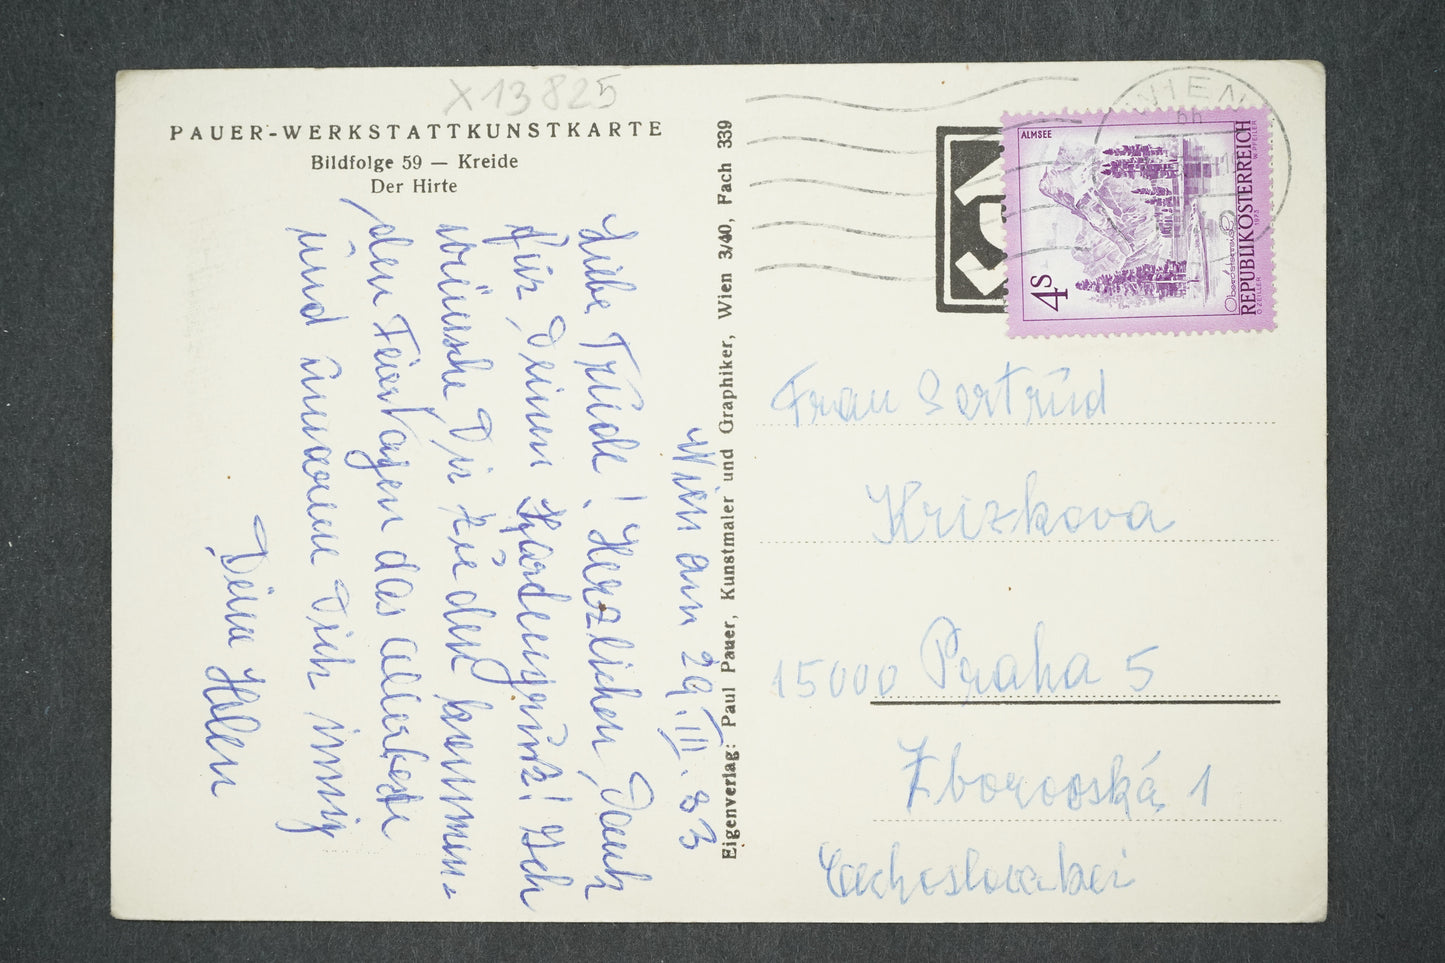 X 13825
PAUER-WERKSTATTKUNSTKARTE
Bildfolge 59 — Kreide
Der Hirte
Wien am 29.III.83
Liebe Trude! Herzlichen Dank
für Deinen Kardengruß! Ich
wünsche Dir für den kommen-
den Feiertagen das allerbeste
und umarme Dich innig
Deine Helen
Eigenverlag: Paul Pauer, Kunstmaler und Graphiker, Wien 3/40, Fach 339
WIEN
ALMSEE
4 S
REPUBLIK ÖSTERREICH
Frau Gertrud
Krizkova
15000 Praha 5
Zborovská 1